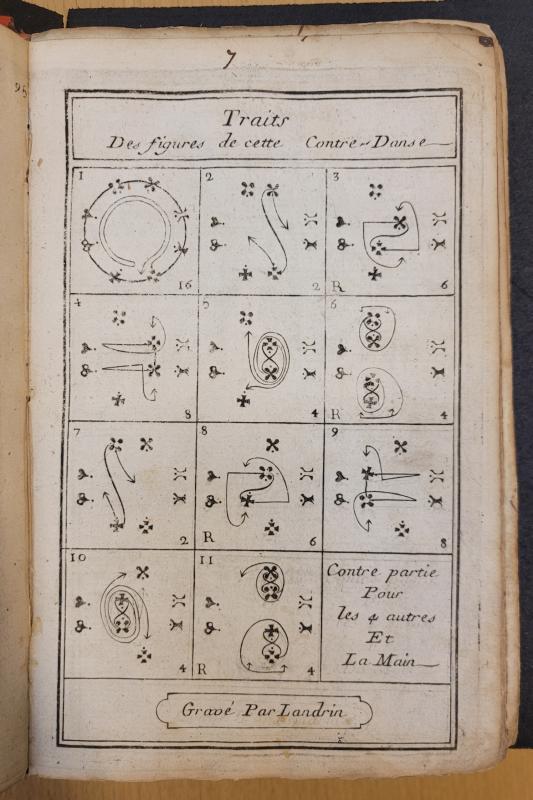 7
Traits
Des figures de cette Contre-Danse
1
16
2
2
3
R 6
4
8
5
4
6
R 4
7
2
8
R 6
9
8
10
4
11
R 4
Contre partie
Pour
les 4 autres
Et
La Main
Gravé Par Landrin